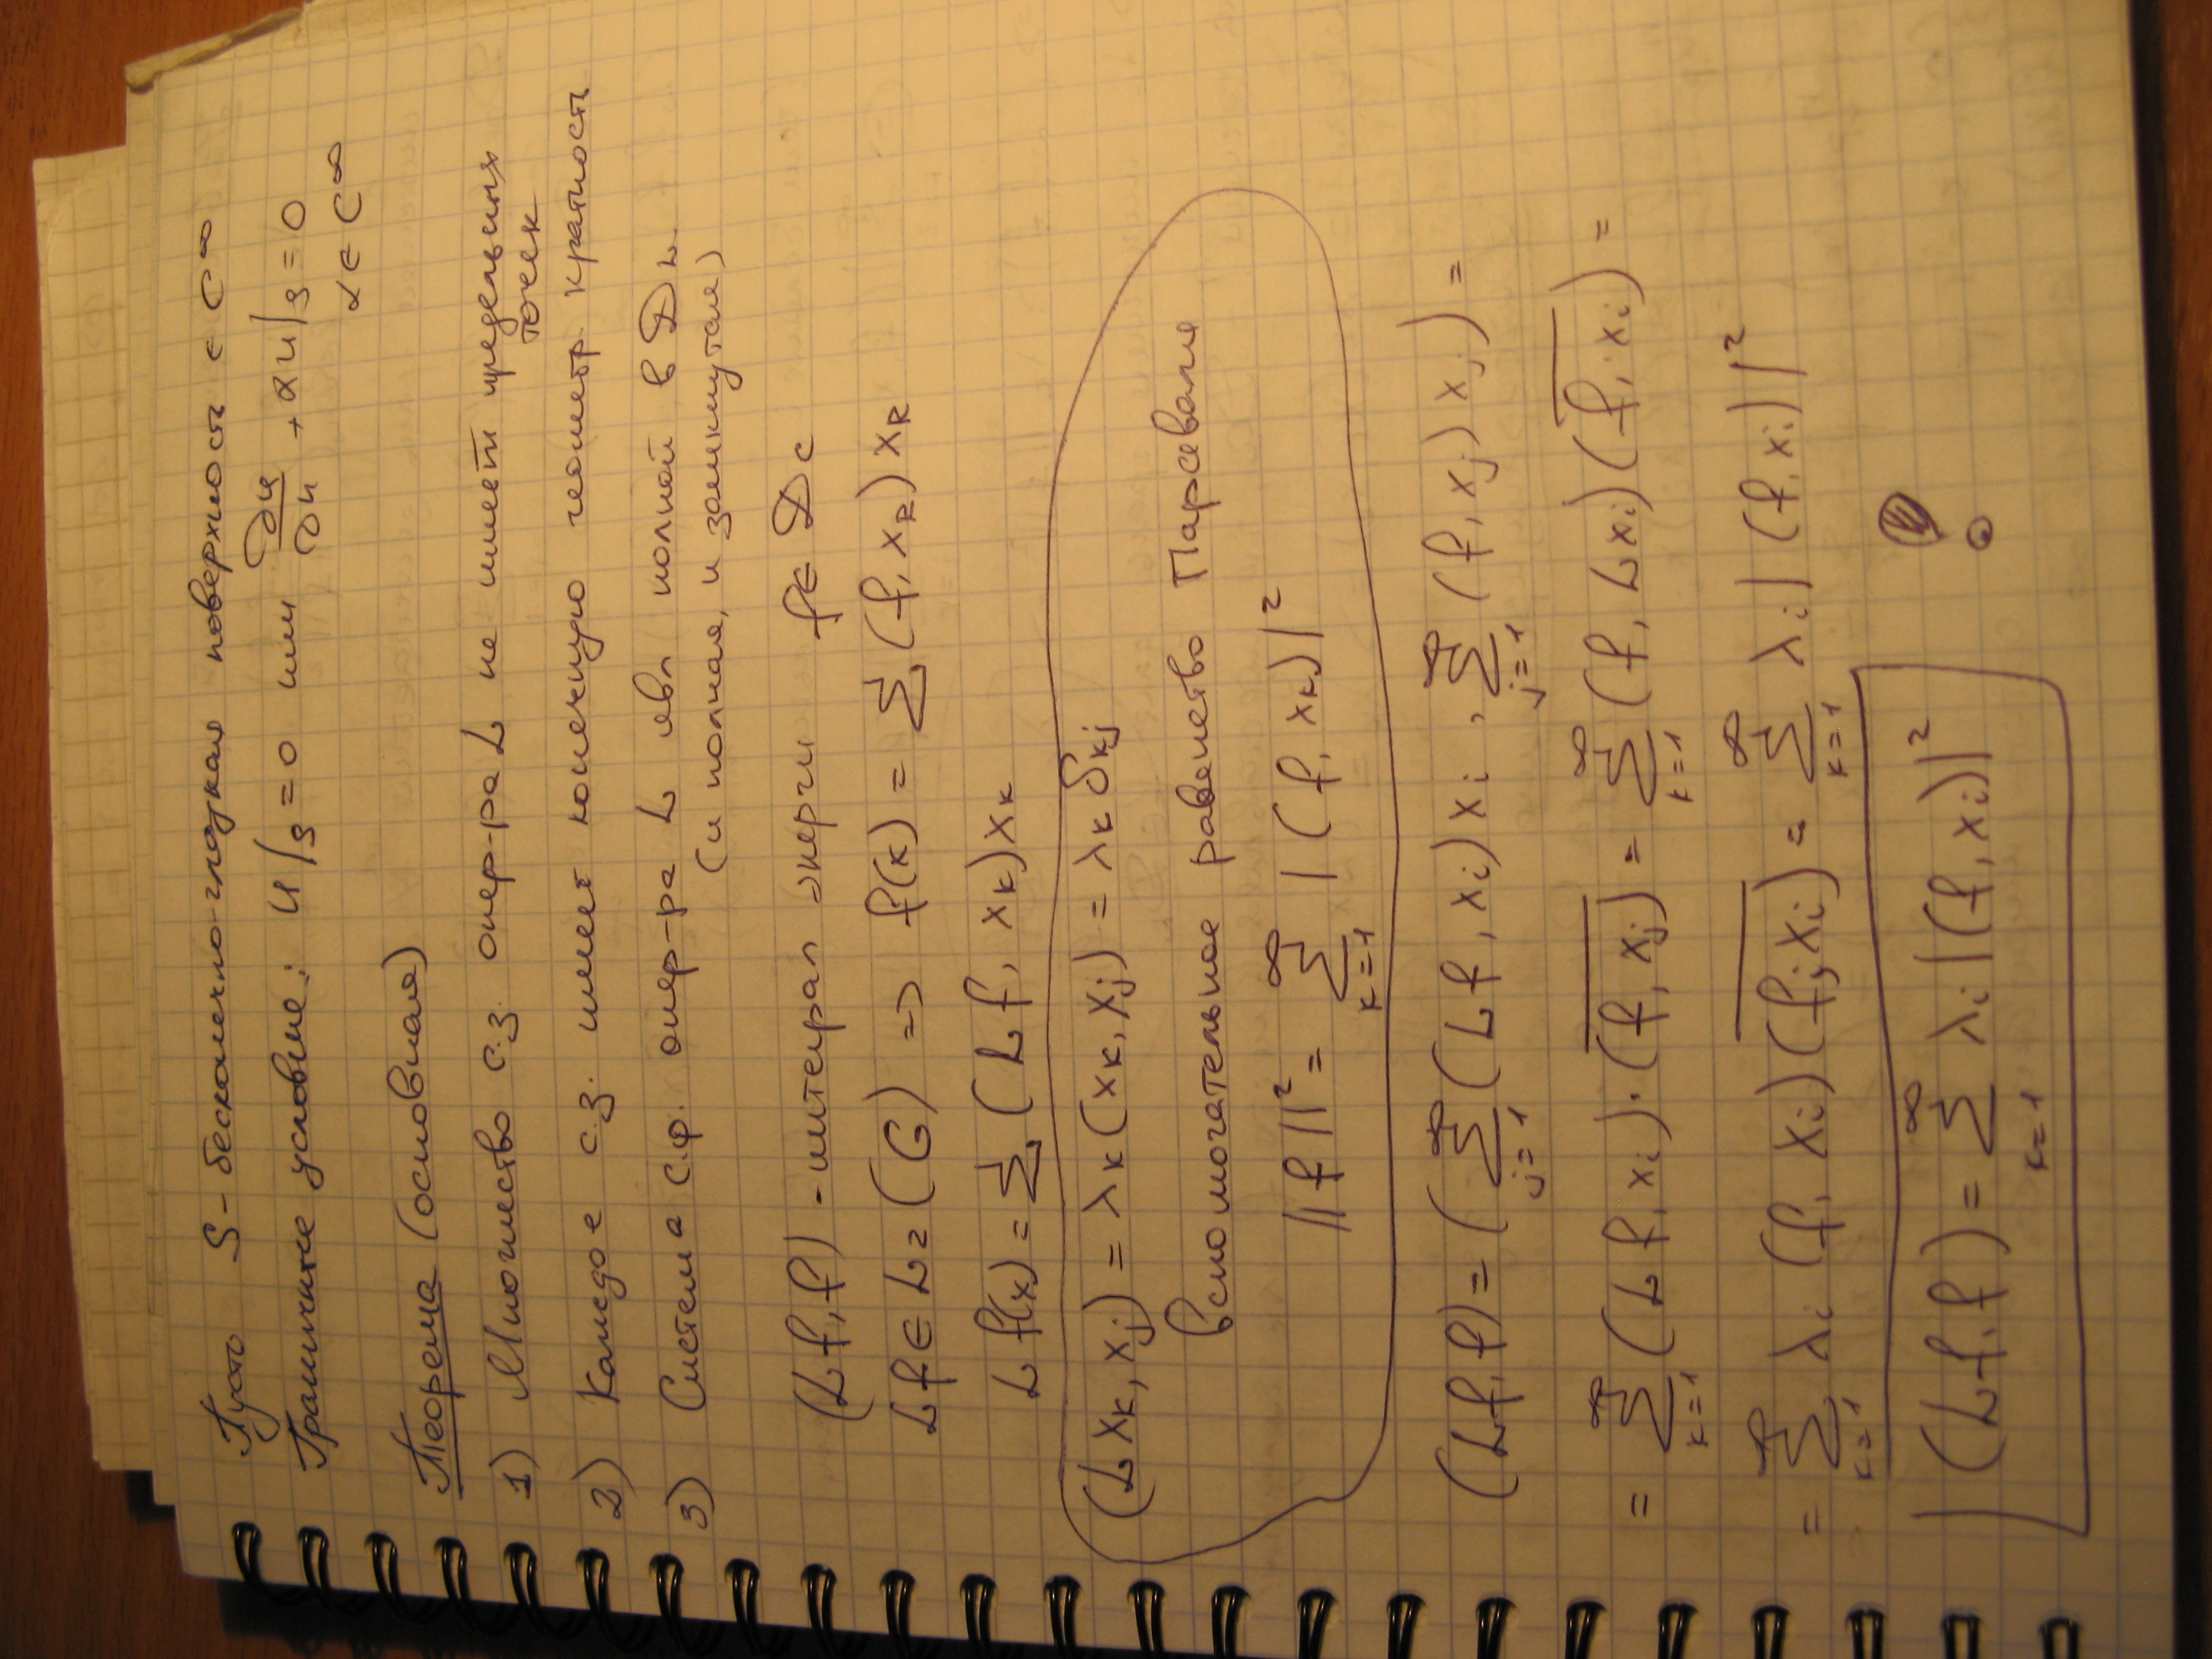 Пусть S - бесконечно-гладкая поверхность ∈ C∞
Граничные условие: u|s = 0 или ∂u/∂n + αu|s = 0
α ∈ C∞
Теорема (основная)
1) Множество с.з. опер-ра L не имеет предельных
точек
2) Каждое с.з. имеет конечную геометр. кратность
3) Система с.ф. опер-ра L явл полной в D L.
(и полная, и замкнутая)
(Lf, f) - интеграл энерги f ∈ D c
Lf ∈ L2(G) => f(k) = Σ(f, xk) xk
L f(x) = Σ(Lf, xk) xk
(L xk, xj) = λk (xk, xj) = λk δkj
вспомогательное равенство Парсеваля
||f||² = ∞ Σ k=1 |(f, xk)|²
(Lf, f) = (∞ Σ j=1 (Lf, xi) xi , ∞ Σ j=1 (f, xj) xj) =
= ∞ Σ k=1 (Lf, xi)·(f, xj) = ∞ Σ k=1 (f, L xi)(f, xi) =
= ∞ Σ k=1 λi (f, xi)(f, xi) = ∞ Σ k=1 λi |(f, xi)|²
(Lf, f) = ∞ Σ k=1 λi |(f, xi)|² !